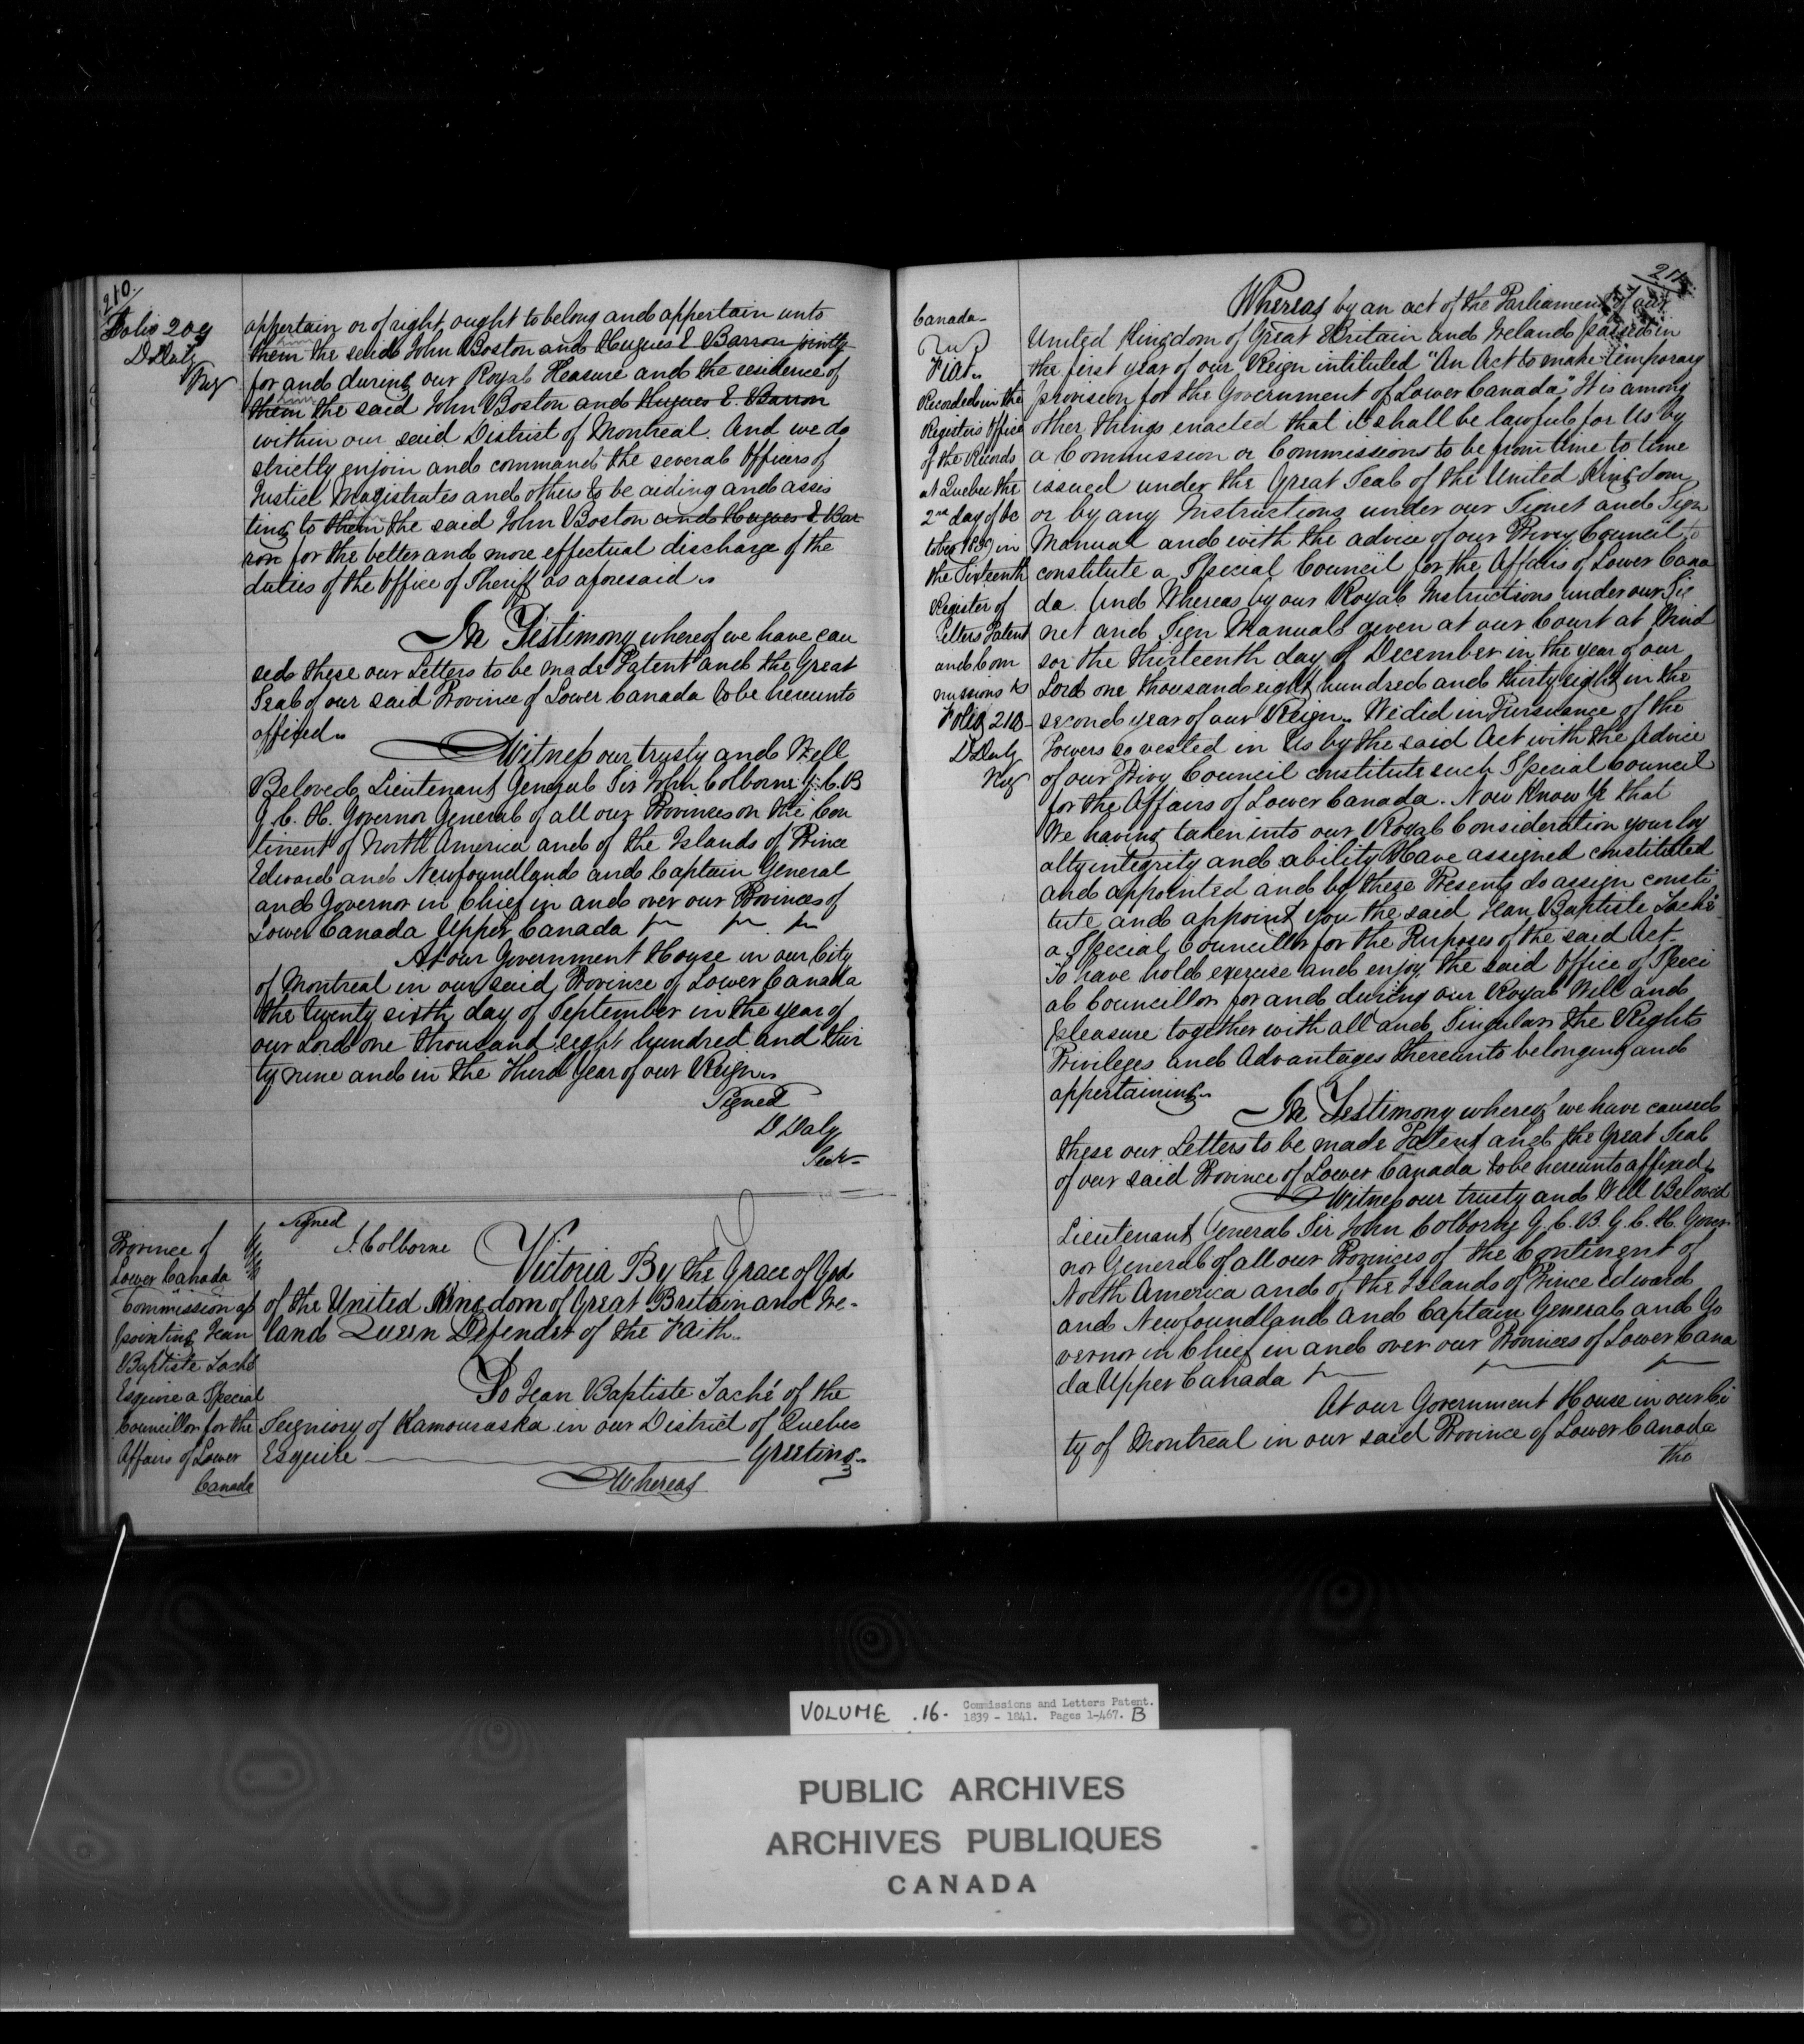 210.
Folio 209
D Daly
Reg
appertain or of right ought to belong and appertain unto
him
them the said John Boston and Hugues E Barron jointly
for and during our Royal Pleasure and the residence of
him
them the said John Boston and Hugues E. Barron
within our said District of Montreal. And we do
strictly enjoin and command the several Officers of
Justice Magistrates and others to be aiding and assis
ting to them the said John Boston and Hugues E Bar
ron for the better and more effectual discharge of the
duties of the Office of Sheriff as aforesaid
In Testimony whereof we have cau
sed these our Letters to be made Patent and the Great
Seal of our said Province of Lower Canada to be hereunto
affixed
Witness our trusty and Well
Beloved Lieutenant General Sir John Colborne G. C. B
G. C. H. Governor General of all our Provinces on the Con
tinent of North America and of the Islands of Prince
Edward and Newfoundland and Captain General
and Governor in Chief in and over our Provinces of
Lower Canada Upper Canada
At our Government House in our City
of Montreal in our said Province of Lower Canada
the twenty sixth day of September in the year of
our Lord one thousand eight hundred and thir
ty nine and in the Third Year of our Reign
Signed
D Daly
Secr
Province of
Lower Canada
Commission ap
pointing Jean
Baptiste Taché
Esquire a Special
Councillor for the
Affairs of Lower
Canada
Signed
J. Colborne
Victoria By the Grace of God
of the United Kingdom of Great Britain and Ire-
land Queen Defender of the Faith
To Jean Baptiste Taché of the
Seigniory of Kamouraska in our District of Quebec
Esquire Greeting
Whereas
211
Canada
Fiat
Recorded in the
Registers Office
of the Records
at Quebec the
2nd day of Oc
tober 1839 in
the Sixteenth
Register of
Letters Patent
and Com
missions
Folio 210
D Daly
Reg
Whereas by an act of the Parliament of our
United Kingdom of Great Britain and Ireland passed in
the first year of our Reign intituled "An Act to make temporary
provision for the Government of Lower Canada", It is among
other things enacted that it shall be lawful for Us by
a Commission or Commissions to be from time to time
issued under the Great Seal of the United Kingdom
or by any Instructions under our Signet and Sign
Manual and with the advice of our Privy Council to
constitute a Special Council for the Affairs of Lower Cana
da. And Whereas by our Royal Instructions under our Sig
net and Sign Manual given at our Court at Wind
sor the thirteenth day of December in the year of our
Lord one thousand eight hundred and thirty eight in the
second year of our Reign. We did in Pursuance of the
Powers so vested in Us by the said Act with the Advice
of our Privy Council constitute such Special Council
for the Affairs of Lower Canada. Now Know Ye that
We having taken into our Royal Consideration your loy
alty integrity and ability Have assigned constituted
and appointed and by these Presents do assign consti
tute and appoint you the said Jean Baptiste Taché
a Special Councillor for the Purposes of the said Act.
To have hold exercise and enjoy the said Office of Speci
al Councillor for and during our Royal Will and
pleasure together with all and Singular the Rights
Privileges and Advantages thereunto belonging and
appertaining
In Testimony whereof we have caused
these our Letters to be made Patent and the Great Seal
of our said Province of Lower Canada to be hereunto affixed
Witness our trusty and Well Beloved
Lieutenant General Sir John Colborne G. C. B. G. C. H. Gover
nor General of all our Provinces of the Continent of
North America and of the Islands of Prince Edward
and Newfoundland and Captain General and Go
vernor in Chief in and over our Provinces of Lower Cana
da Upper Canada
At our Government House in our Ci
ty of Montreal in our said Province of Lower Canada
the
VOLUME .16. Commissions and Letters Patent.
1839 - 1841. Pages 1-467. B
PUBLIC ARCHIVES
ARCHIVES PUBLIQUES
CANADA